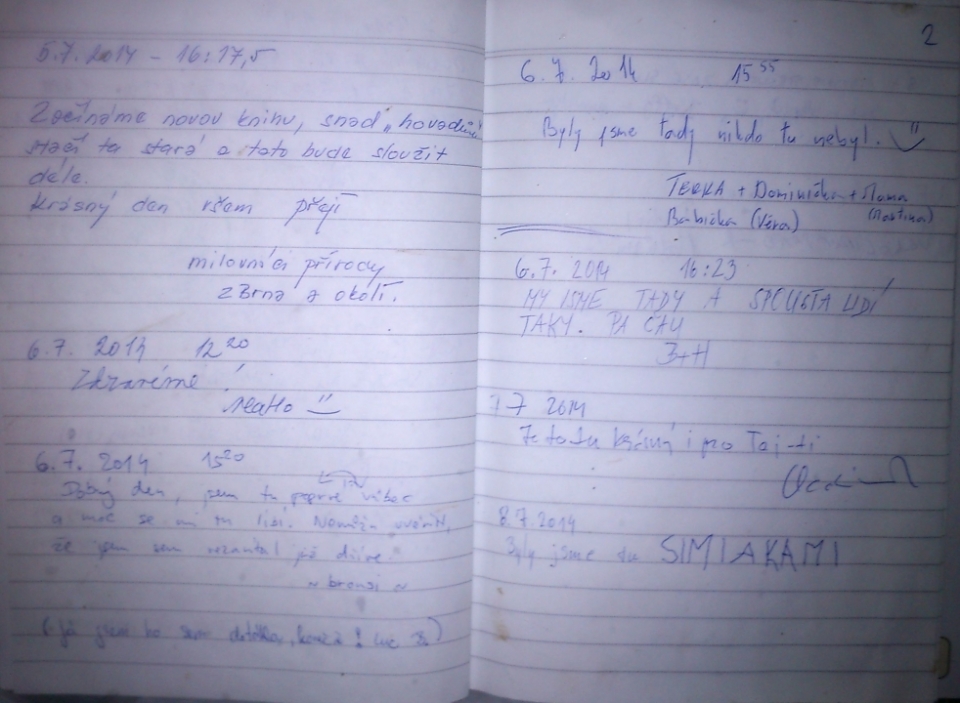 5.7.2014 - 16:17,5
Začínáme novou knihu, snad "hovad
stačí ta stará a tato bude sloužit
déle.
Krásný den všem přejí
milovníci přírody
z Brna a okolí.
6.7. 2014 12 20
Zdravíme!
6.7. 2014 15 20
Dobrý den, jsem tu poprvé vůbec
a moc se mi tu líbí. Nemůžu uvěřit,
že jsem sem nezavítal již dříve.
~ bronsi ~
(Já jsem ho sem
2
6.7. 2014 15 55
Byly jsme tady nikdo tu nebyl.
TERKA + Dominička + Mama
Babička (Věra) (Martina)
6.7. 2014 16:23
MY JSME TADY A SPOUSTA LIDÍ
TAKY. PA ČAU
3+H
7.7 2014
Je to tu krásný i pro
8.7.2014
Byly jsme tu SIMIAKAMI